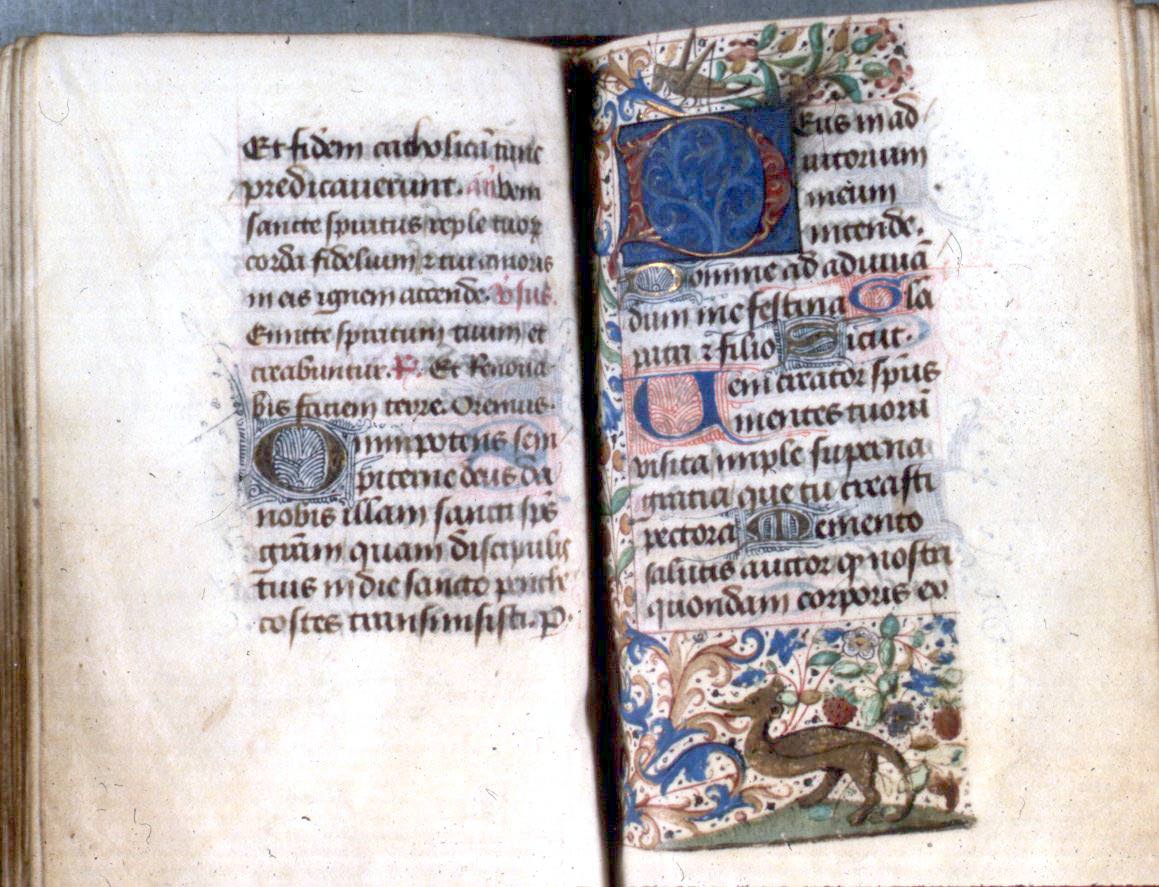 Et fidem catholicā tunc
predicauerunt. añ Veni
sancte spiritus reple tuoꝝ
corda fidelium ⁊ tui amoris
in eis ignem accende. v̄sus.
Emitte spiritum tuum et
creabuntur. ℟. Et Renoua-
bis faciem terre. Oremus.
Omnipotens sem
piterne deus da
nobis illam sancti sp̄s
gr̄am quam discipulis
tuis in die sancto penthe
costes transmisisti. P
Deus in ad
iutorium
meum
intende.
Domine ad adiuuā
dum me festina Gla
patri ⁊ filio Sicut.
Ueni creator sp̄us
mentes tuorū
visita imple superna
gratia que tu creasti
pectora Memento
salutis auctor ꝙ nostri
quondam corporis ex